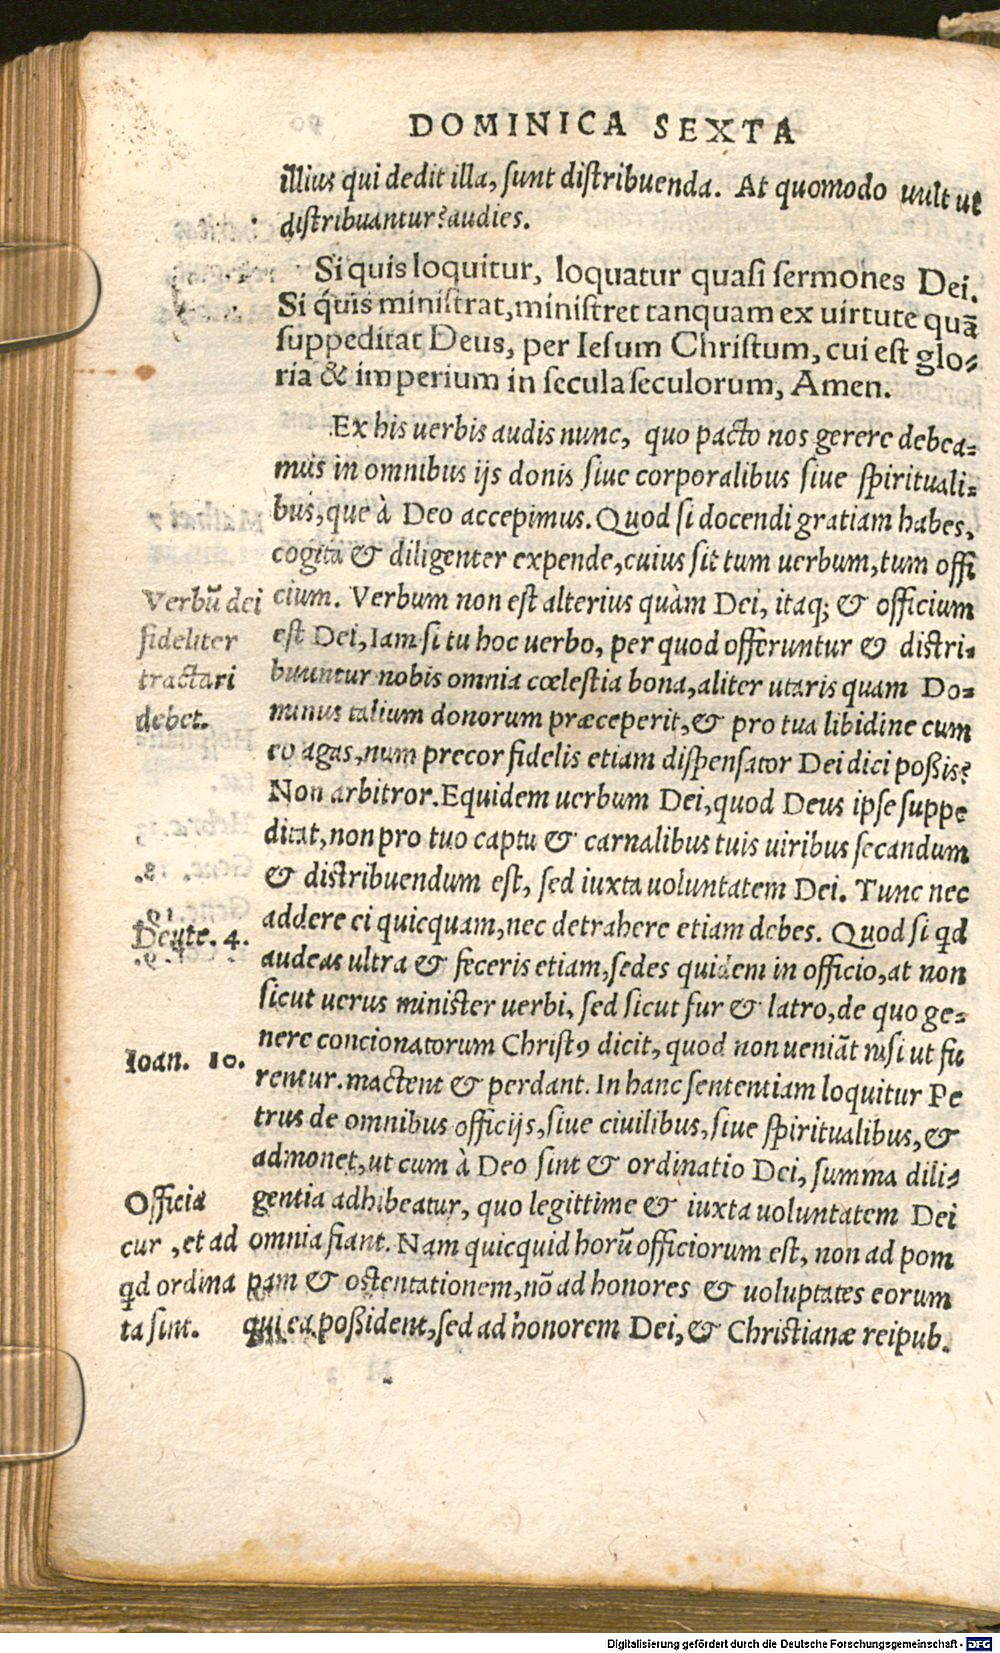 DOMINICA SEXTA
illius qui dedit illa, sunt distribuenda. At quomodo uult ut
distribuantur? audies.
Si quis loquitur, loquatur quasi sermones Dei.
Si q́uis ministrat, ministret tanquam ex uirtute quā
suppeditat Deus, per Iesum Christum, cui est glo-
ria & imperium in secula seculorum, Amen.
Ex his uerbis audis nunc, quo pacto nos gerere debea-
mus in omnibus ijs donis siue corporalibus siue spirituali-
bus, que à Deo accepimus. Quod si docendi gratiam habes,
cogita & diligenter expende, cuius sit tum uerbum, tum offi
Verbū dei
fideliter
tractari
debet.
cium. Verbum non est alterius quàm Dei, itaq; & officium
est Dei, Iam si tu hoc uerbo, per quod offeruntur & distri-
buuntur nobis omnia cœlestia bona, aliter utaris quam Do-
minus talium donorum præceperit, & pro tua libidine cum
eo agas, num precor fidelis etiam dispensator Dei dici poßis?
Non arbitror. Equidem uerbum Dei, quod Deus ipse suppe
ditat, non pro tuo captu & carnalibus tuis uiribus secandum
& distribuendum est, sed iuxta uoluntatem Dei. Tunc nec
Deute. 4.
addere ei quicquam, nec detrahere etiam debes. Quod si qd
audeas ultra & feceris etiam, sedes quidem in officio, at non
sicut uerus minister uerbi, sed sicut fur & latro, de quo ge-
Ioan. 10.
nere concionatorum Christꝯ dicit, quod non ueniāt nisi ut fu
rentur. mactent & perdant. In hanc sententiam loquitur Pe
trus de omnibus officijs, siue ciuilibus, siue spiritualibus, &
admonet, ut cum à Deo sint & ordinatio Dei, summa dili-
Officia
cur, et ad
qd ordina
ta sint.
gentia adhibeatur, quo legittime & iuxta uoluntatem Dei
omnia fiant. Nam quicquid horū officiorum est, non ad pom
pam & ostentationem, nō ad honores & uoluptates eorum
qui ea poßident, sed ad honorem Dei, & Christianæ reipub.
Digitalisierung gefördert durch die Deutsche Forschungsgemeinschaft - DFG